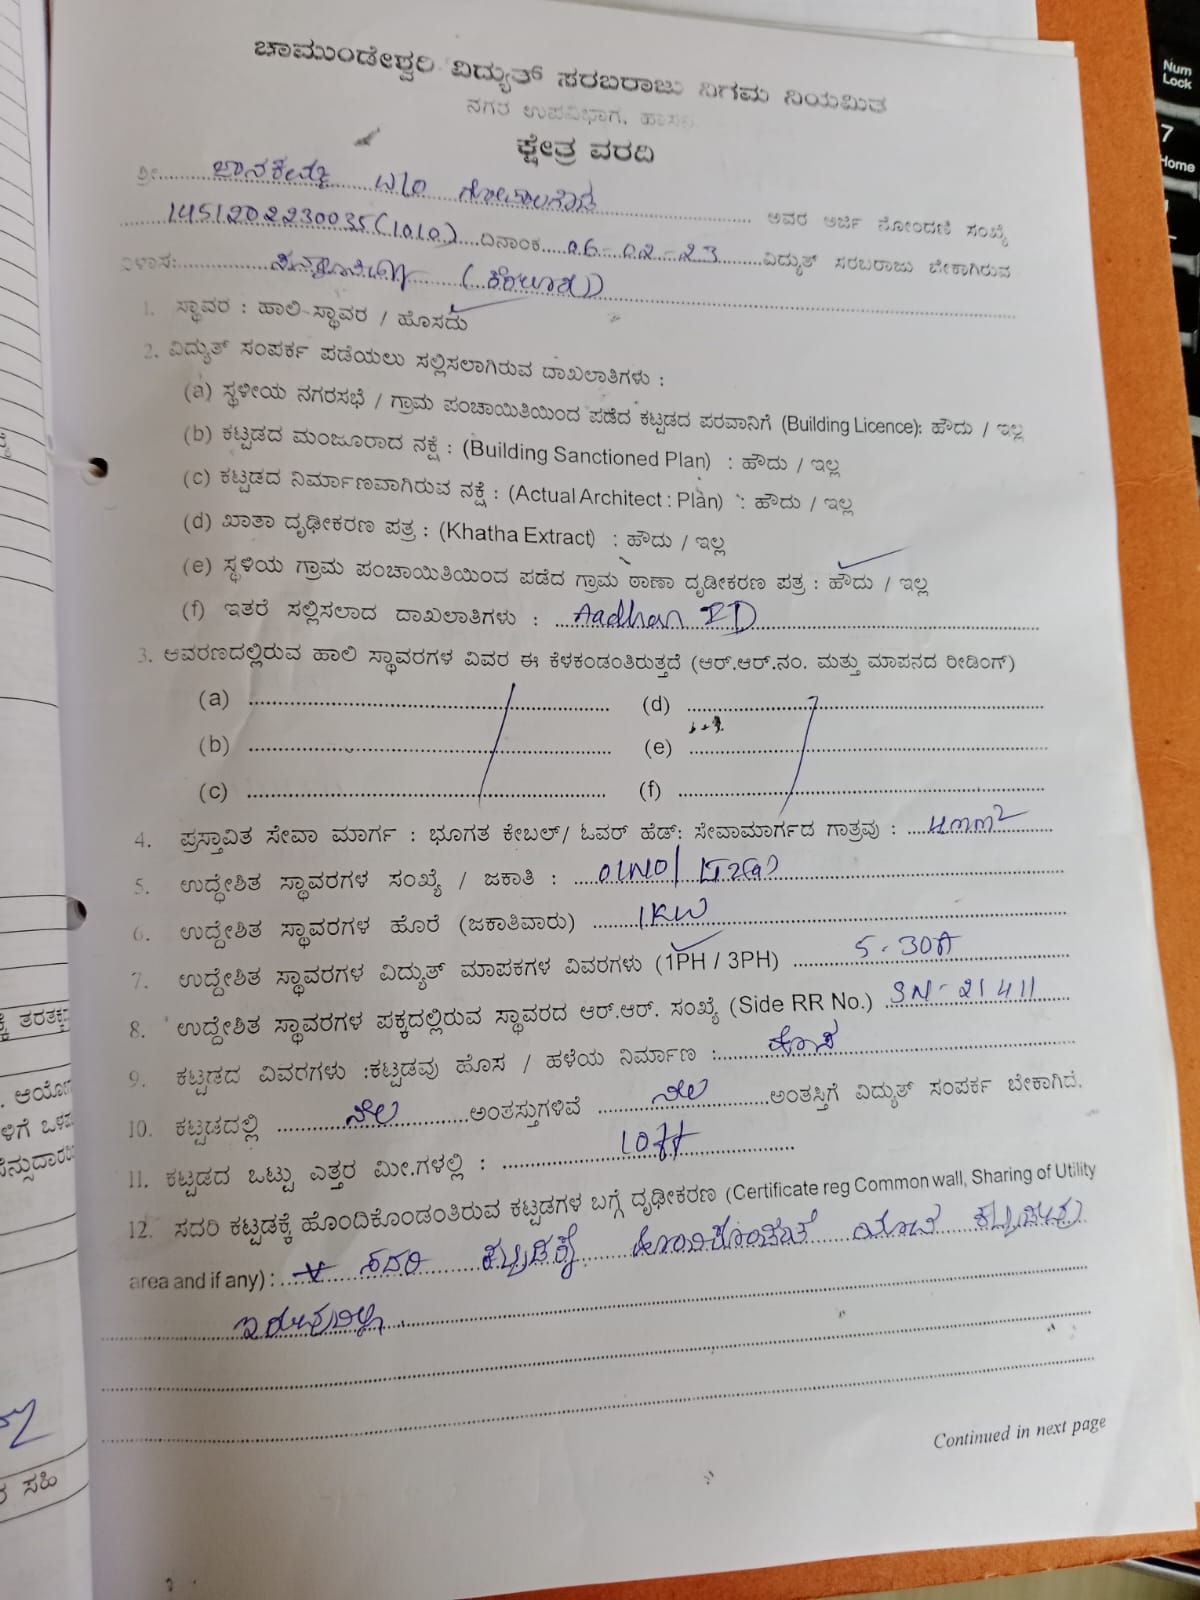 ಚಾಮುಂಡೇಶ್ವರಿ ವಿದ್ಯುತ್ ಸರಬರಾಜು ನಿಗಮ ನಿಯಮಿತ
ನಗರ ಉಪವಿಭಾಗ, ಹಾಸನ
ಕ್ಷೇತ್ರ ವರದಿ
ಶ್ರೀ.....ಜಾನಕಮ್ಮ W/O ಗೋಪಾಲಗೌಡ..... ಅವರ ಅರ್ಜಿ ನೋಂದಣಿ ಸಂಖ್ಯೆ
.....1451202230035(1010)....ದಿನಾಂಕ...06-02-23.......ವಿದ್ಯುತ್ ಸರಬರಾಜು ಬೇಕಾಗಿರುವ
ವಿಳಾಸ:.....
1. ಸ್ಥಾವರ : ಹಾಲಿ ಸ್ಥಾವರ / ಹೊಸದು
2. ವಿದ್ಯುತ್ ಸಂಪರ್ಕ ಪಡೆಯಲು ಸಲ್ಲಿಸಲಾಗಿರುವ ದಾಖಲಾತಿಗಳು :
(a) ಸ್ಥಳೀಯ ನಗರಸಭೆ / ಗ್ರಾಮ ಪಂಚಾಯಿತಿಯಿಂದ ಪಡೆದ ಕಟ್ಟಡದ ಪರವಾನಿಗೆ (Building Licence): ಹೌದು / ಇಲ್ಲ
(b) ಕಟ್ಟಡದ ಮಂಜೂರಾದ ನಕ್ಷೆ : (Building Sanctioned Plan) : ಹೌದು / ಇಲ್ಲ
(c) ಕಟ್ಟಡದ ನಿರ್ಮಾಣವಾಗಿರುವ ನಕ್ಷೆ : (Actual Architect : Plan) : ಹೌದು / ಇಲ್ಲ
(d) ಖಾತಾ ದೃಢೀಕರಣ ಪತ್ರ : (Khatha Extract) : ಹೌದು / ಇಲ್ಲ
(e) ಸ್ಥಳಿಯ ಗ್ರಾಮ ಪಂಚಾಯಿತಿಯಿಂದ ಪಡೆದ ಗ್ರಾಮ ಠಾಣಾ ದೃಡೀಕರಣ ಪತ್ರ : ಹೌದು / ಇಲ್ಲ
(f) ಇತರೆ ಸಲ್ಲಿಸಲಾದ ದಾಖಲಾತಿಗಳು : ...Aadhar ID.....
3. ಆವರಣದಲ್ಲಿರುವ ಹಾಲಿ ಸ್ಥಾವರಗಳ ವಿವರ ಈ ಕೆಳಕಂಡಂತಿರುತ್ತದೆ (ಆರ್.ಆರ್.ನಂ. ಮತ್ತು ಮಾಪನದ ರೀಡಿಂಗ್)
(a) ..... (d) .....
(b) ..... (e) .....
(c) ..... (f) .....
4. ಪ್ರಸ್ತಾವಿತ ಸೇವಾ ಮಾರ್ಗ : ಭೂಗತ ಕೇಬಲ್/ ಓವರ್ ಹೆಡ್: ಸೇವಾಮಾರ್ಗದ ಗಾತ್ರವು : ...4mm²...
5. ಉದ್ಧೇಶಿತ ಸ್ಥಾವರಗಳ ಸಂಖ್ಯೆ / ಜಕಾತಿ : ...01NO/ LT2(a).....
6. ಉದ್ದೇಶಿತ ಸ್ಥಾವರಗಳ ಹೊರೆ (ಜಕಾತಿವಾರು) ......1KW.....
7. ಉದ್ದೇಶಿತ ಸ್ಥಾವರಗಳ ವಿದ್ಯುತ್ ಮಾಪಕಗಳ ವಿವರಗಳು (1PH / 3PH) .....5-30A.....
8. ಉದ್ದೇಶಿತ ಸ್ಥಾವರಗಳ ಪಕ್ಕದಲ್ಲಿರುವ ಸ್ಥಾವರದ ಆರ್.ಆರ್. ಸಂಖ್ಯೆ (Side RR No.) SN-21411
9. ಕಟ್ಟಡದ ವಿವರಗಳು :ಕಟ್ಟಡವು ಹೊಸ / ಹಳೆಯ ನಿರ್ಮಾಣ :......ಹೊಸ.....
10. ಕಟ್ಟಡದಲ್ಲಿ ......ನೆಲ......ಅಂತಸ್ತುಗಳಿವೆ .....ನೆಲ.....ಅಂತಸ್ತಿಗೆ ವಿದ್ಯುತ್ ಸಂಪರ್ಕ ಬೇಕಾಗಿದೆ.
11. ಕಟ್ಟಡದ ಒಟ್ಟು ಎತ್ತರ ಮೀ.ಗಳಲ್ಲಿ : .....10ft.....
12. ಸದರಿ ಕಟ್ಟಡಕ್ಕೆ ಹೊಂದಿಕೊಂಡಂತಿರುವ ಕಟ್ಟಡಗಳ ಬಗ್ಗೆ ದೃಢೀಕರಣ (Certificate reg Common wall, Sharing of Utility
area and if any) : ..... ಸದರಿ ಕಟ್ಟಡಕ್ಕೆ ಹೊಂದಿಕೊಂಡಂತೆ ಯಾವ ಕಟ್ಟಡವು
ಇರುವುದಿಲ್ಲ.
Continued in next page
Num
Lock
7
Home
ಸಹಿ